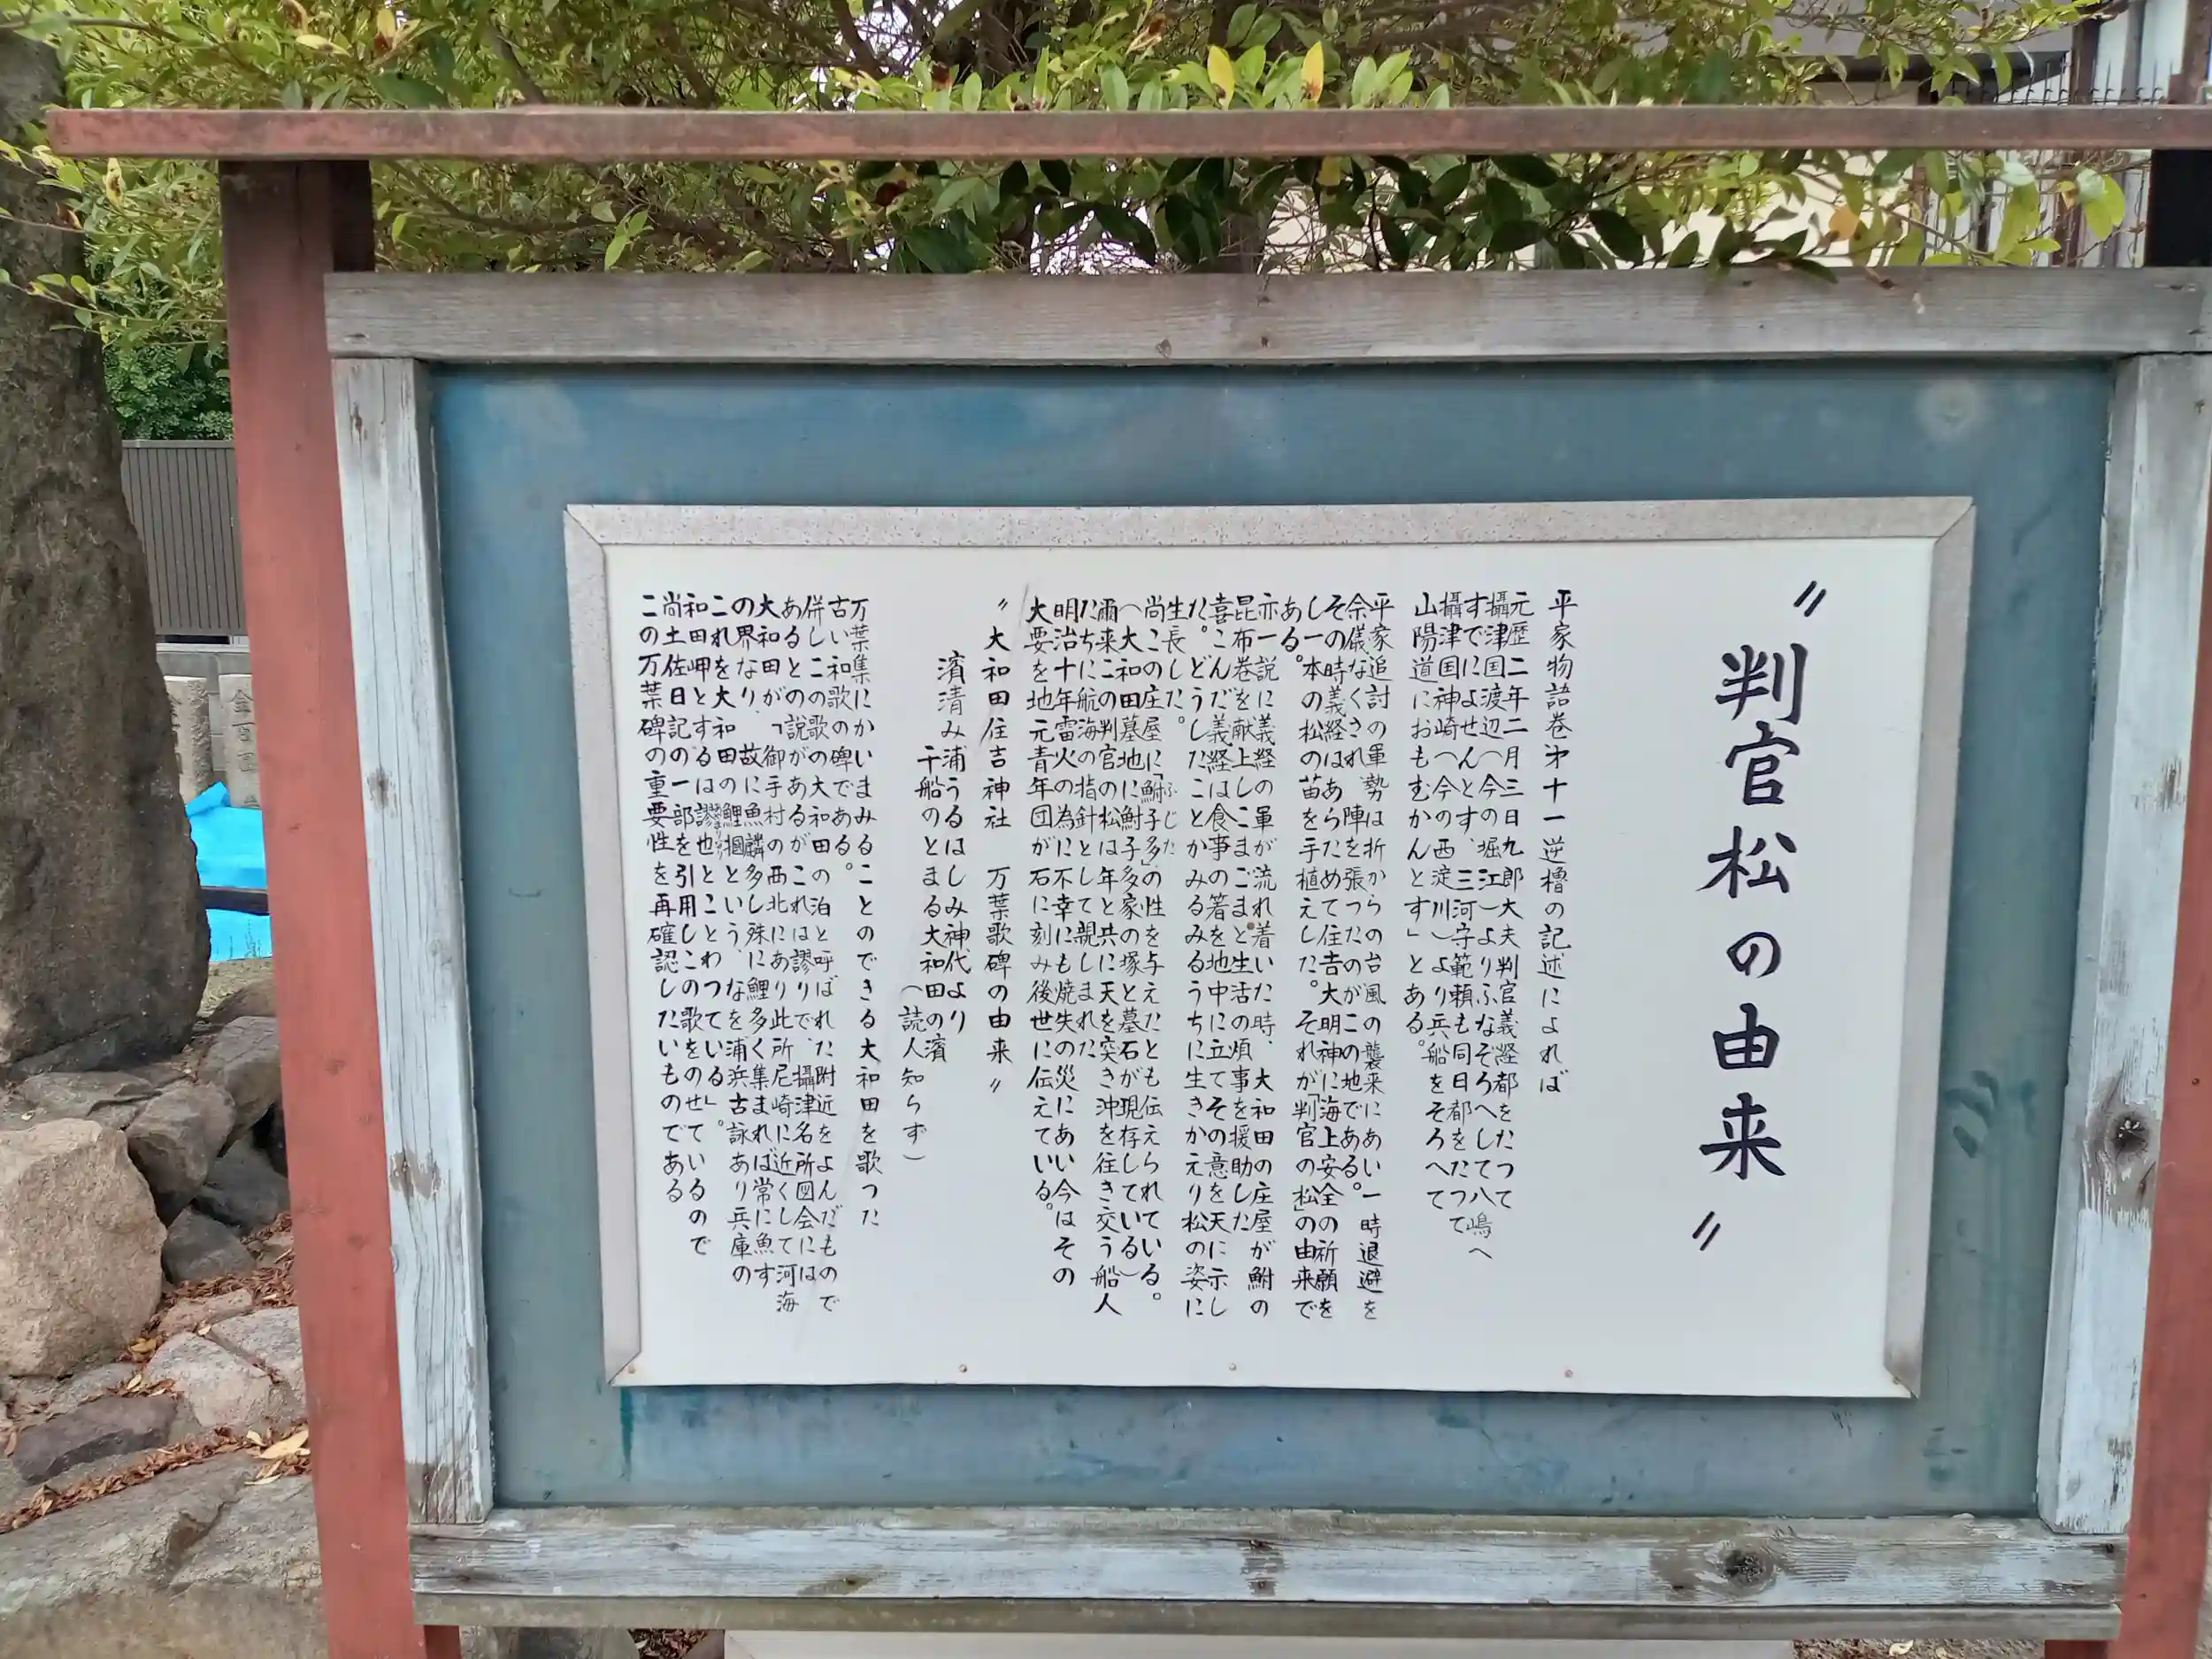 〃判官松の由来〃
平家物語巻第十一逆櫓の記述によれば
元歴二年二月三日九郎大夫判官義経都をたつて
攝津国渡辺(今の堀江)よりふなぞろへして八嶋へ
すでによせんとす、三河守範頼も同日都をたつて
攝津国神崎(今の西淀川)より兵船をそろへて
山陽道におもむかんとす」とある。
平家追討の軍勢は折からの台風の襲来にあい一時退避を
余儀なくされ陣を張つたのがこの地である。
その時義経はあらためて住吉大明神に海上安全の祈願を
し一本の松の苗を手植えした。それが「判官の松」の由来で
ある。
亦一説に義経の軍が流れ着いた時、大和田の庄屋が鮒の
昆布巻を献上しこまごまと生活の煩事を援助した
喜こんだ義経は食事の箸を地中に立てその意を天に示し
た。どうしたことかみるみるうちに生きかえり松の姿に
生長した。
尚この庄屋に「鮒子多」の性を与えたとも伝えられている。
ふじた
(大和田墓地に鮒子多家の塚と墓石が現存している)
爾来この判官の松は年と共に天を突き沖を往き交う船人
たちに航海の指針として親しまれた
明治十年雷火の為に不幸にも焼失の災にあい今はその
大要を地元青年団が石に刻み後世に伝えている。
〃大和田住吉神社 万葉歌碑の由来〃
濱清み浦うるはしみ神代より
千船のとまる大和田の濱
(読人知らず)
万葉集にかいまみることのできる大和田を歌つた
古い和歌の碑である。
併しこの歌の大和田の泊と呼ばれた附近をよんだもので
あるとの説があるがこれは謬りで、攝津名所図会には
大和田が「御手村の西北にあり此所尼崎に近くして河海
の界なり、故に魚鱗多し殊に鯉多く集まれば常に魚す
これを大和田の鯉掴という、なを浦浜古詠あり兵庫の
和田岬とするは謬也とことわつている」。
尚土佐日記の一部を引用しこの歌をのせているので
この万葉碑の重要性を再確認したいものである